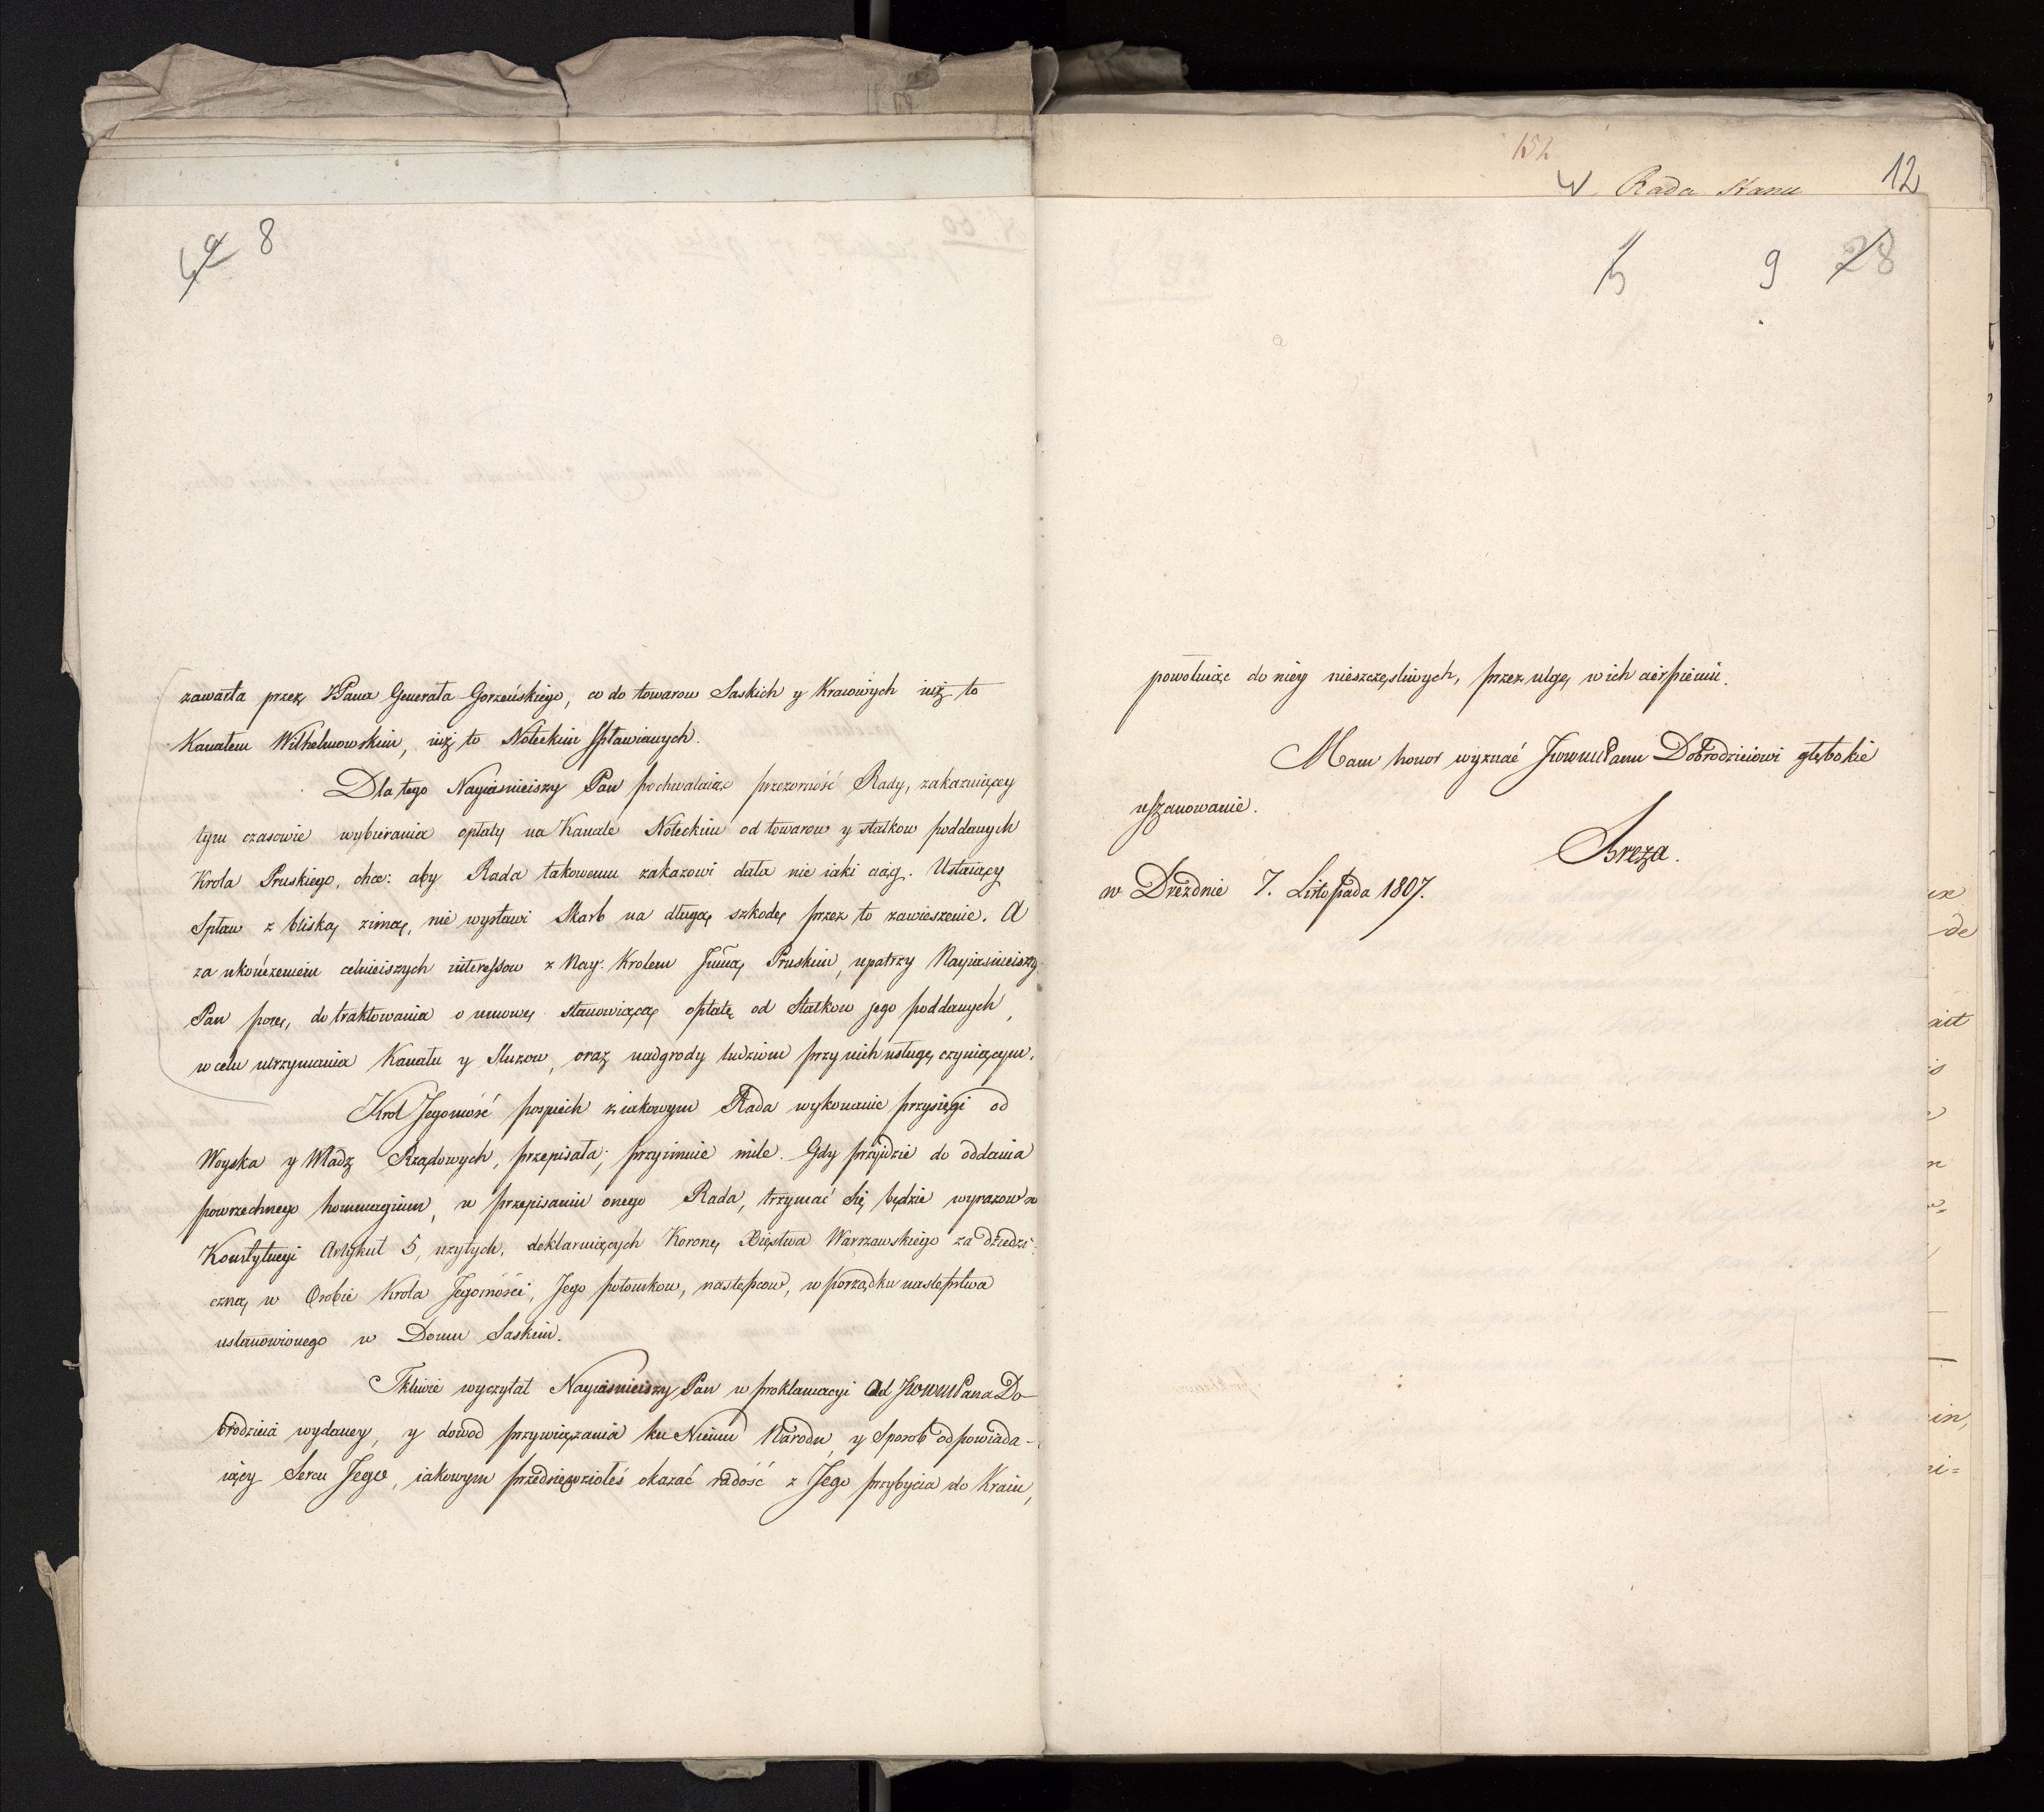 8
zawarta przez JPana Generała Gorzeńskiego, co do towarow Saskich y Kraiowych iuż to
Kanałem Wilhelmowskim, iuż to Noteckim spławianych.
Dla tego Nayiaśnieiszy Pan pochwalaiąc przezorność Rady, zakazuiącey
tym czasowie wybierania opłaty na Kanale Noteckim od towarow y statkow poddanych
Krola Pruskiego, chce: aby Rada takowemu zakazowi dała nie iaki ciąg. Ustaiący
Spław z bliską zimą, nie wystawi Skarb na długą szkodę przez to zawieszenie. A
za ukończeniem celnieiszych interessow z Nay: Krolem Jmią Pruskim, upatrzy Nayiaśnieiszy
Pan porę, do traktowania o umowę stanowiącą opłatę od Statkow jego poddanych,
w celu utrzymania Kanału y Sluzow, oraz nadgrody ludziom przy nich usługę czyniącym.
Krol Jegomość pospiech z iakowym Rada wykonanie przysięgi od
Woyska y Władz Rządowych, przepisała; przyimuie mile. Gdy przyidzie do oddania
powrzechnego hommagium, w przepisaniu onego Rada, trzymać się będzie wyrazow w
Konstytucyi Artykuł 5, uzytych, deklaruiących Koronę Xięstwa Warszawskiego za dziedzi-
czną w Osobie Krola Jegomości, Jego potomkow, następcow, w porządku następstwa
ustanowionego w Domu Saskim.
Tkliwie wyczytał Nayiaśnieiszy Pan w proklamacyi od JWWMPana Do-
brodzieia wydaney, y dowod przywiązania ku Niemu Narodu, y Sposob odpowiada-
iący Sercu Jego, iakowym przedsięwziołeś okazać radość z Jego przybycia do Kraiu,
152
W Rada Stanu
12
9 28
powołuiąc do niey nieszczęśliwych, przez ulgę w ich cierpieniu.
Mam honor wyznać JWWMPanu Dobrodzieiowi głębokie
uszanowanie.
Breza.
w Dreznie 7. Listopada 1807.